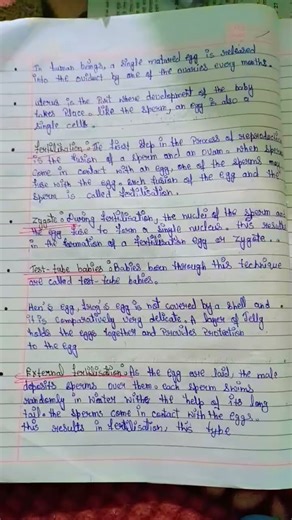 • In human beings, a single matured egg is released
into the oviduct by one of the ovaries every months.
• uterus is the Part where development of the baby
takes Place. like the sperm, an egg is also a
single cells.
• Fertilisation: The first step in the Process of reproduction
is the fusion of a sperm and an ovum. when sperm
come in contact with an egg, one of the sperms may
fuse with the egg. such fusion of the egg and the
sperm is called fertilisation.
• Zygote: During fertilisation, the nuclei of the sperm and
the egg fuse to form a single nucleus. this results
in the formation of a fertilisation egg or zygote.
• Test-tube babies: Babies born through this technique
are called test-tube babies.
• Hen's egg, frog's egg is not covered by a shell and
it is comparatively very delicate. A layer of Jelly
holds the eggs together and Provides Protection
to the egg
• External fertilisation: As the egg are laid, the male
deposits sperms over them. each sperm swims
randomly in water with the help of its long
tail. the sperms come in contact with the eggs.
this results in fertilisation, this type